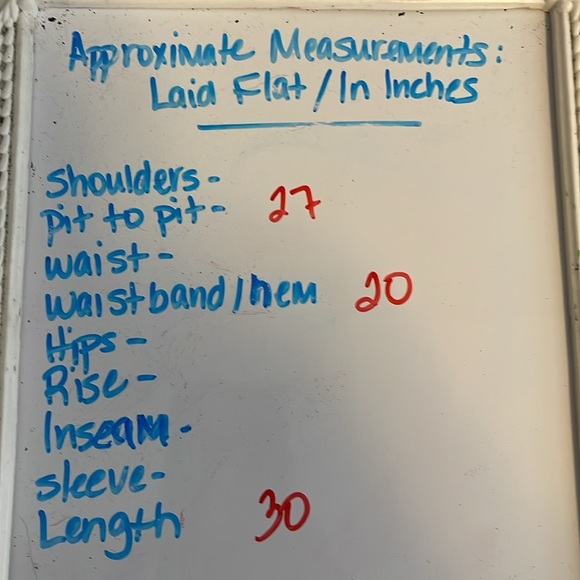 Approximate Measurements:
Laid Flat/In Inches
Shoulders-
pit to pit- 27
waist-
waistband/hem 20
Hips-
Rise-
Inseam-
sleeve-
Length 30